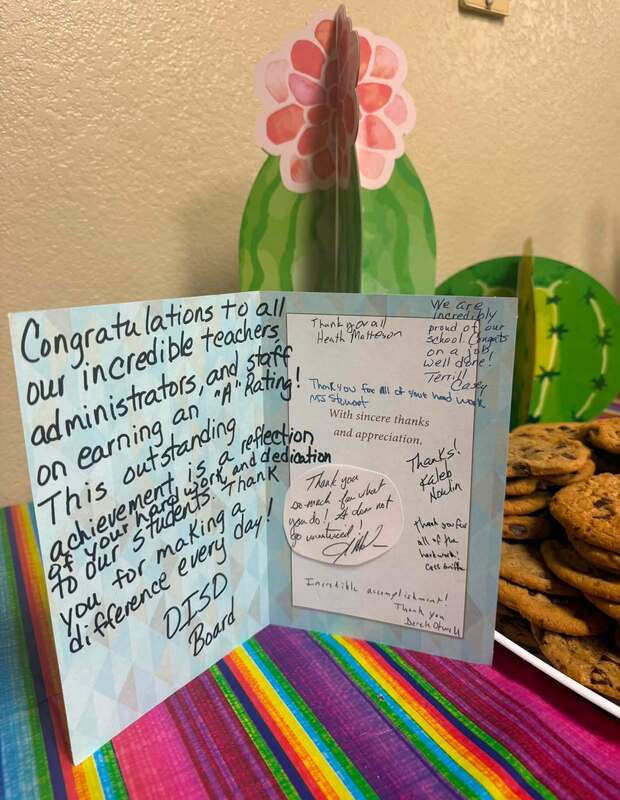 Congratulations to all
our incredible teachers,
administrators, and staff
on earning an "A" Rating!
This outstanding
achievement is a reflection
of your hard work and dedication
to our students. Thank
you for making a
difference every day!
DISD
Board
Thank you all
Heath Matteson
We are
incredibly
proud of our
school. Congrats
on a job
well done!
Terrill
Casey
Thank you for all of your hard work
Ms Stewart
With sincere thanks
and appreciation,
Thanks!
Kaleb
Nowlin
Thank you
so much for what
you do! It does not
go unnoticed!
Thank you for
all of the
hard work!
Cass Griffin
Incredible accomplishment!
Thank you
Derek Otwell